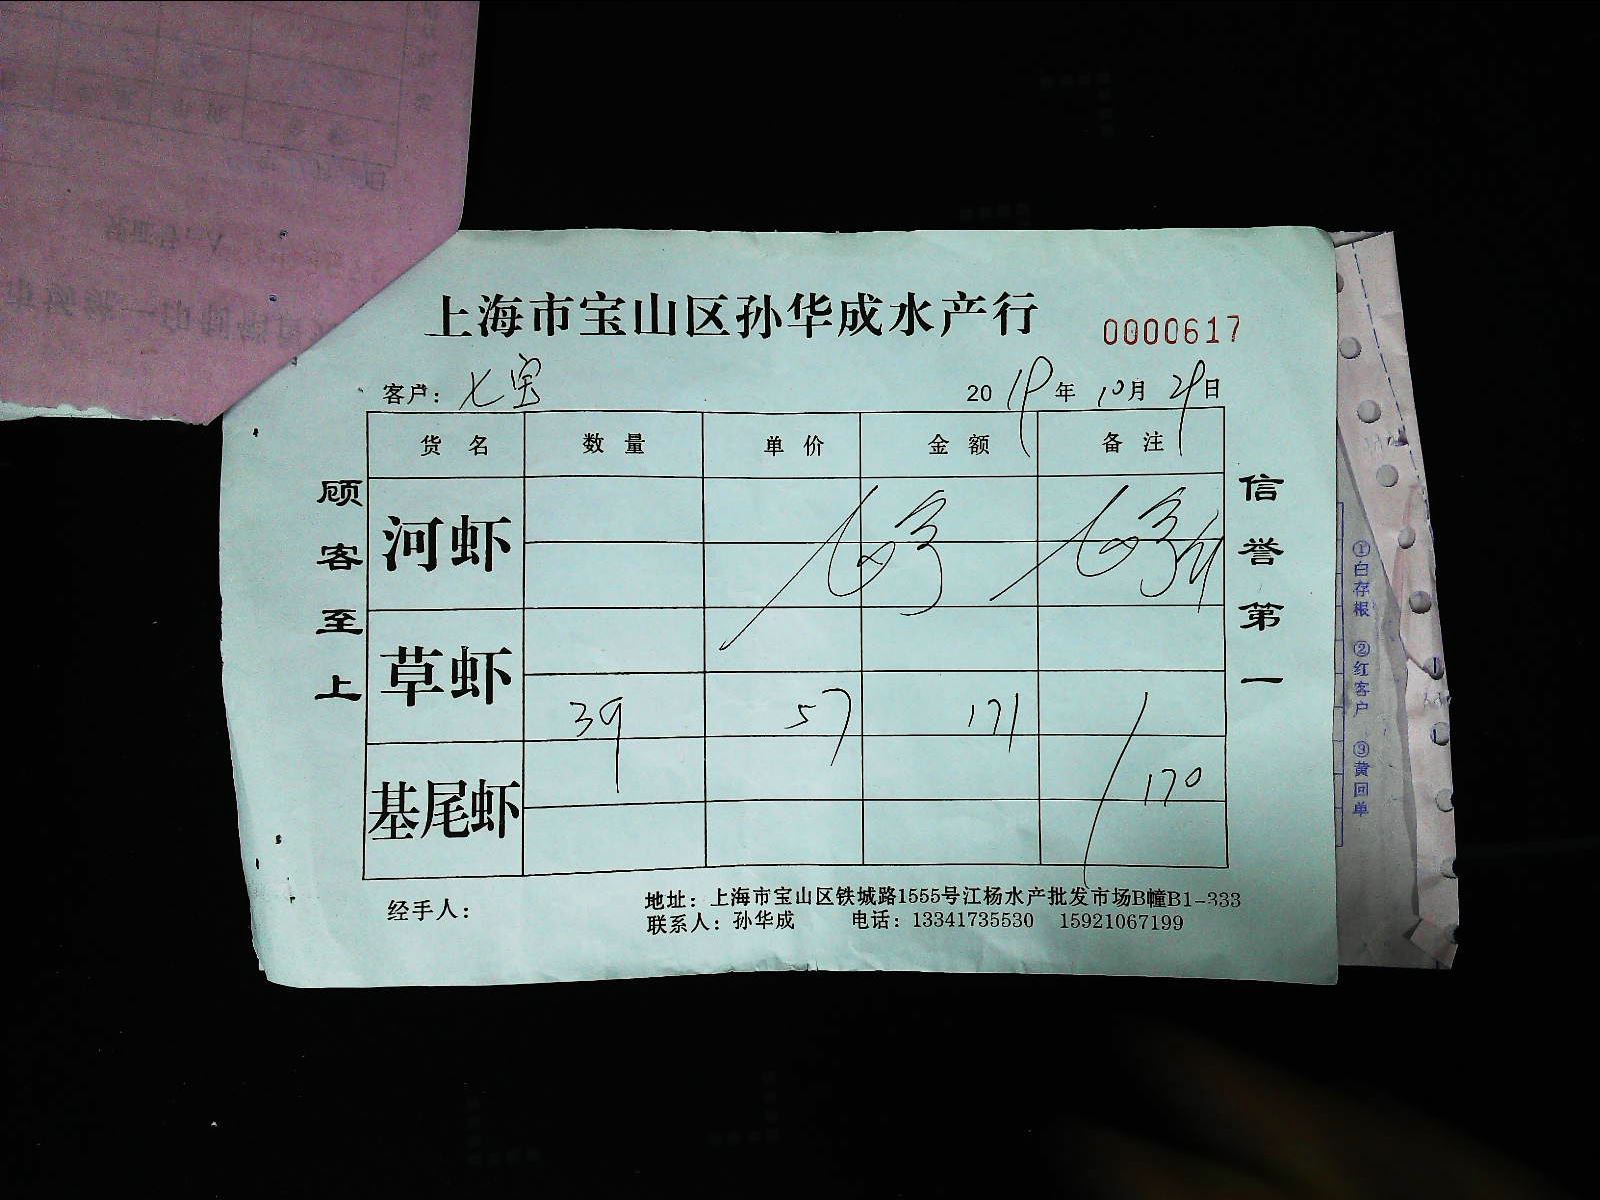 上海市宝山区孙华成水产行 0000617
客户: 七宝 2019年10月29日
货名 数量 单价 金额 备注
河虾
草虾
39 57 171
基尾虾
170
顾客至上
信誉第一
经手人:
地址: 上海市宝山区铁城路1555号江杨水产批发市场B幢B1-333
联系人: 孙华成 电话: 13341735530 15921067199
①白存根 ②红客户 ③黄回单